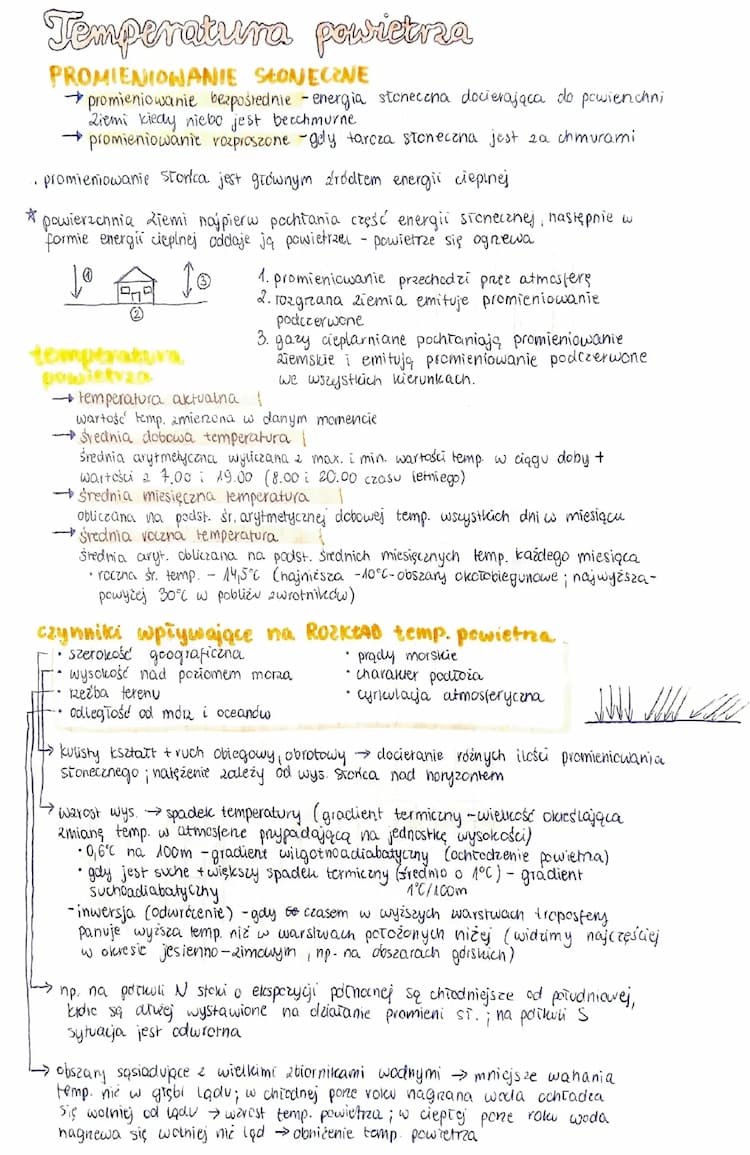 Temperatura powietrza
PROMIENIOWANIE SŁONECZNE
→ promieniowanie bezpośrednie - energia słoneczna docierająca do powierzchni
Ziemi kiedy niebo jest bezchmurne
→ promieniowanie rozproszone - gdy tarcza słoneczna jest za chmurami
. promieniowanie Słońca jest głównym źródłem energii cieplnej
* powierzchnia Ziemi najpierw pochłania część energii słonecznej, następnie w
formie energii cieplnej oddaje ją powietrzu - powietrze się ogrzewa
① ② ③
1. promieniowanie przechodzi przez atmosferę
2. rozgrzana Ziemia emituje promieniowanie
podczerwone
3. gazy cieplarniane pochłaniają promieniowanie
ziemskie i emitują promieniowanie podczerwone
we wszystkich kierunkach.
temperatura
powietrza
→ temperatura aktualna
wartość temp. zmierzona w danym momencie
→ średnia dobowa temperatura
średnia arytmetyczna wyliczana z max. i min. wartości temp. w ciągu doby +
wartości z 7.00 i 19.00 (8.00 i 20.00 czasu letniego)
→ średnia miesięczna temperatura
obliczana na podst. śr. arytmetycznej dobowej temp. wszystkich dni w miesiącu
→ średnia roczna temperatura
średnia aryt. obliczana na podst. średnich miesięcznych temp. każdego miesiąca
• roczna śr. temp. - 14,5°C (najniższa -10°C - obszary okołobiegunowe ; najwyższa -
powyżej 30°C w pobliżu zwrotników)
czynniki wpływające na ROZKŁAD temp. powietrza
• szerokość geograficzna
• wysokość nad poziomem morza
• rzeźba terenu
• odległość od mórz i oceanów
• prądy morskie
• charakter podłoża
• cyrkulacja atmosferyczna
→ kulisty kształt + ruch obiegowy, obrotowy → docieranie różnych ilości promieniowania
słonecznego ; natężenie zależy od wys. Słońca nad horyzontem
→ wzrost wys. → spadek temperatury (gradient termiczny - wielkość określająca
zmianę temp. w atmosferze przypadającą na jednostkę wysokości)
• 0,6°C na 100m - gradient wilgotnoadiabatyczny (ochłodzenie powietrza)
• gdy jest suche + większy spadek termiczny (średnio o 1°C) - gradient
suchoadiabatyczny 1°C/100m
- inwersja (odwrócenie) - gdy czasem w wyższych warstwach troposfery
panuje wyższa temp. niż w warstwach położonych niżej (widzimy najczęściej
w okresie jesienno-zimowym, np. na obszarach górskich)
→ np. na półkuli N stoki o ekspozycji północnej są chłodniejsze od południowej,
które są dłużej wystawione na działanie promieni sł. ; na półkuli S
sytuacja jest odwrotna
→ obszary sąsiadujące z wielkimi zbiornikami wodnymi → mniejsze wahania
temp. niż w głębi lądu ; w chłodnej porze roku nagrzana woda ochładza
się wolniej od lądu → wzrost temp. powietrza ; w ciepłej porze roku woda
nagrzewa się wolniej niż ląd → obniżenie temp. powietrza